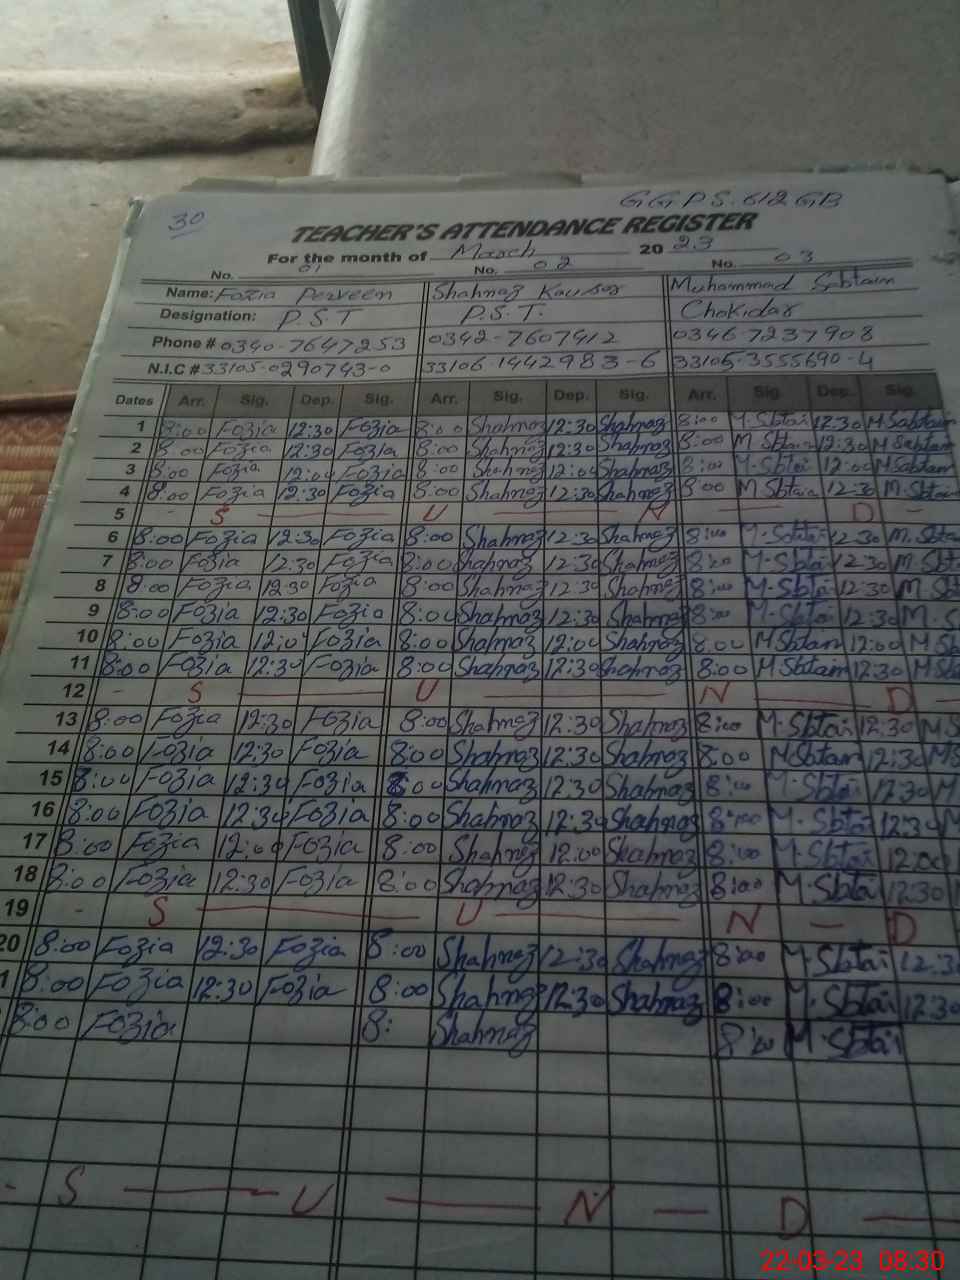 G G P S. 612 GB
30
TEACHER'S ATTENDANCE REGISTER
For the month of March 2023
No. 01 No. 02 No. 03
Name: Fozia Perveen Shahnaz Kausar Muhammad Sabtain
Designation: P.S.T P.S.T. Chokidar
Phone # 0340-7647253 0342-7607412 0346 7237908
N.I.C # 33105-0290743-0 33106-1442983-6 33105-3555690-4
Dates Arr. Sig. Dep. Sig. Arr. Sig. Dep. Sig. Arr. Sig. Dep. Sig.
1 8:00 Fozia 12:30 Fozia 8:00 Shahnaz 12:30 Shahnaz 8:00 M.Sbtai 12:30 M Sabtain
2 8:00 Fozia 12:30 Fozia 8:00 Shahnaz 12:30 Shahnaz 8:00 M Sbtain 12:30 M Sabtain
3 8:00 Fozia 12:00 Fozia 8:00 Shahnaz 12:00 Shahnaz 8:00 M.Sbtai 12:00 M Sabtain
4 8:00 Fozia 12:30 Fozia 8:00 Shahnaz 12:30 Shahnaz 8:00 M Sbtain 12:30 M.Sbtain
5 - S U N D -
6 8:00 Fozia 12:30 Fozia 8:00 Shahnaz 12:30 Shahnaz 8:00 M.Sbtai 12:30 M.Sbta
7 8:00 Fozia 12:30 Fozia 8:00 Shahnaz 12:30 Shahnaz 8:00 M.Sbtai 12:30 M.Sbt
8 8:00 Fozia 12:30 Fozia 8:00 Shahnaz 12:30 Shahnaz 8:00 M.Sbtai 12:30 M. Sb
9 8:00 Fozia 12:30 Fozia 8:00 Shahnaz 12:30 Shahnaz 8:00 M.Sbtai 12:30 M. S
10 8:00 Fozia 12:00 Fozia 8:00 Shahnaz 12:00 Shahnaz 8:00 M Sbtain 12:00 M Sb
11 8:00 Fozia 12:30 Fozia 8:00 Shahnaz 12:30 Shahnaz 8:00 M Sbtain 12:30 M Sb
12 - S U N D
13 8:00 Fozia 12:30 Fozia 8:00 Shahnaz 12:30 Shahnaz 8:00 M.Sbtai 12:30 M S
14 8:00 Fozia 12:30 Fozia 8:00 Shahnaz 12:30 Shahnaz 8:00 M Sbtain 12:30 M S
15 8:00 Fozia 12:30 Fozia 8:00 Shahnaz 12:30 Shahnaz 8:00 M.Sbtai 12:30 M
16 8:00 Fozia 12:30 Fozia 8:00 Shahnaz 12:30 Shahnaz 8:00 M.Sbtai 12:30 M
17 8:00 Fozia 12:00 Fozia 8:00 Shahnaz 12:00 Shahnaz 8:00 M.Sbtai 12:00
18 8:00 Fozia 12:30 Fozia 8:00 Shahnaz 12:30 Shahnaz 8:00 M.Sbtai 12:30
19 - S U N - D
20 8:00 Fozia 12:30 Fozia 8:00 Shahnaz 12:30 Shahnaz 8:00 M.Sbtai 12:3
1 8:00 Fozia 12:30 Fozia 8:00 Shahnaz 12:30 Shahnaz 8:00 M.Sbtai 12:30
8:00 Fozia 8: Shahnaz 8:00 M.Sbtai
- S U N - D
22-03-23 08:30